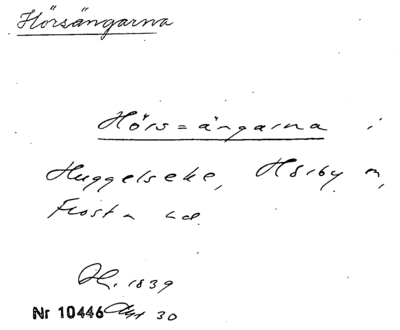 Hörsängarna
Hörs=ängarna i
Huggelseke, Hörby n,
Frosta hd.
H. 1839
Nr 10446 Akt 30